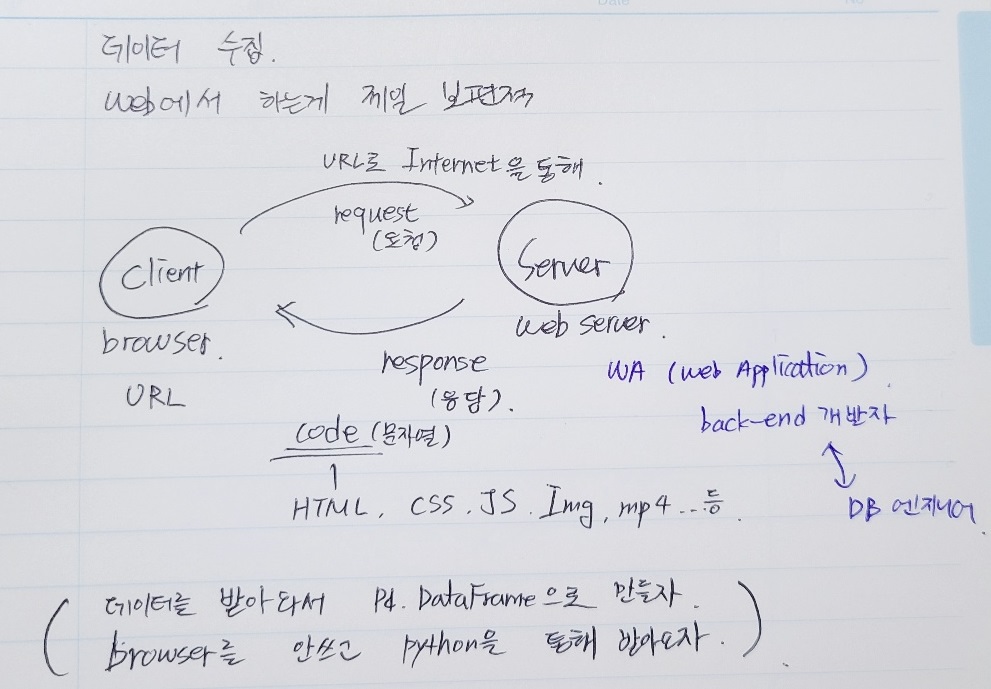 Date
No
데이터 수집.
Web에서 하는게 제일 보편적
URL로 Internet을 통해.
request
(요청)
Client
Server
browser.
web server.
URL
response
(응답).
WA (Web Application)
back-end 개발자
code (문자열)
HTML, CSS, JS. Img, mp4 ... 등.
DB 엔지니어.
( 데이터를 받아와서 Pd. DataFrame으로 만들자.
browser를 안쓰고 python을 통해 받아오자. )